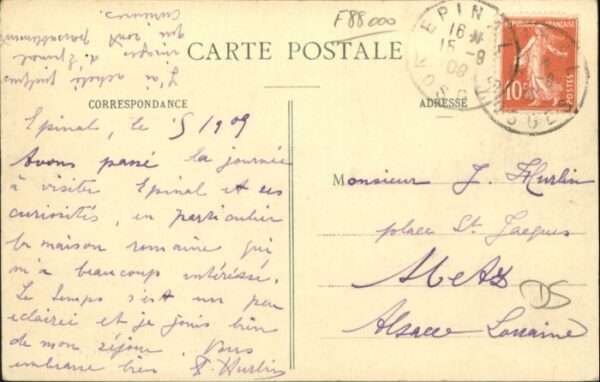 F88000
CARTE POSTALE
CORRESPONDANCE
ADRESSE
J'ai acheté quelques
images d'Epinal
qui sont passablement
curieuses.
Epinal, le 1909
Avons passé la journée
à visiter Epinal et ses
curiosités, en particulier
la maison romaine qui
m'a beaucoup intéressé.
Le temps s'est un peu
eclairci et je jouis bien
de mon séjour. Vous
embrasse bien Hurlin
Monsieur J. Hurlin
place St. Jacques
Metz
Alsace Lorraine
DS
EPINAL
16
15 -9
09
VOSGES
REPUBLIQUE FRANÇAISE
10c
POSTES